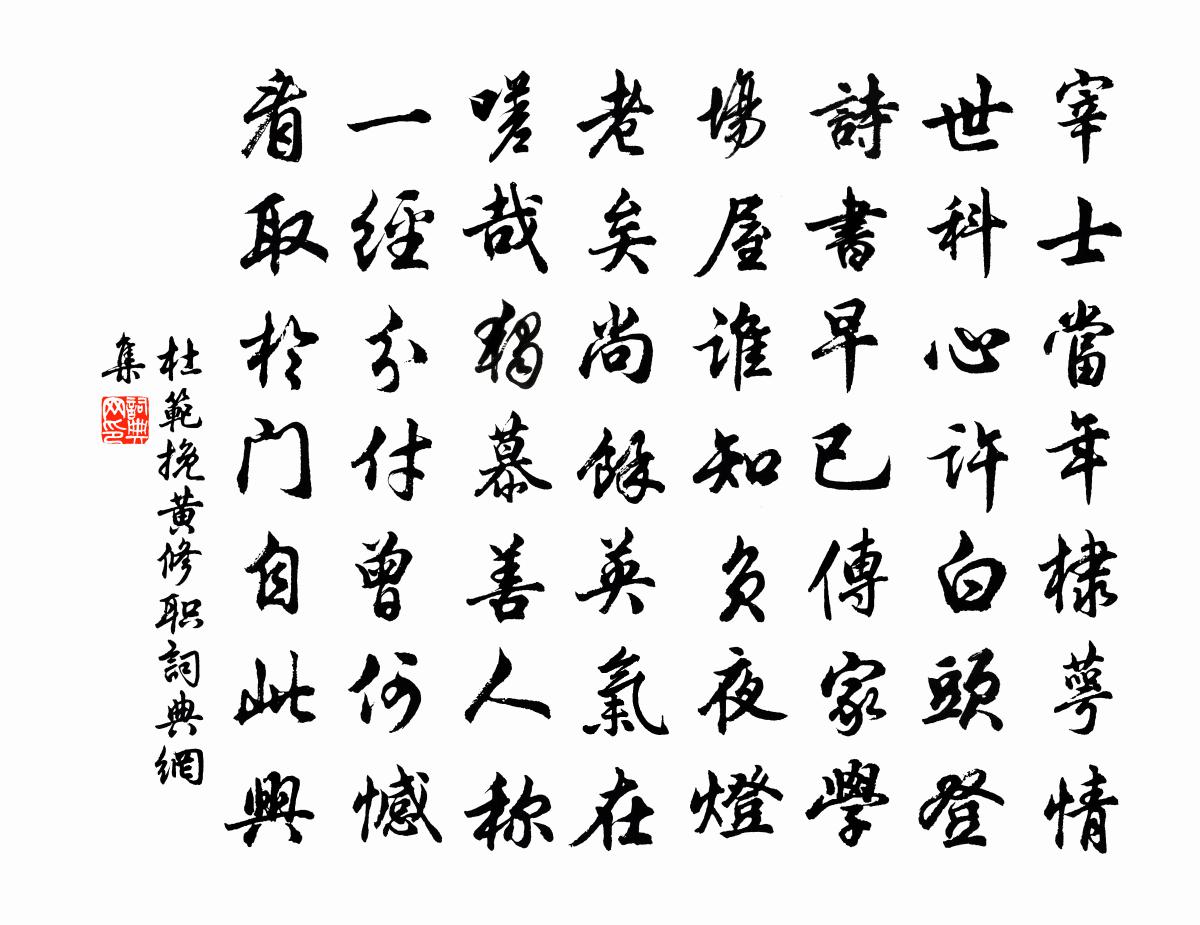 宰士當年棣萼情
世科心許白頭登
詩書早已傳家學
場屋誰知負夜燈
老矣尚餘英氣在
嗟哉獨慕善人称
一經分付曾何憾
看取於門自此興
杜範挽黄修职詞典網
集
詞典网印